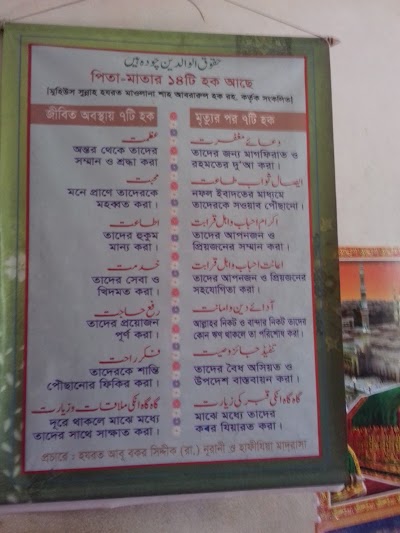 حقوق الوالدین چودہ ہیں
পিতা-মাতার ১৪টি হক আছে
[মুহিউস সুন্নাহ হযরত মাওলানা শাহ আবরারুল হক রহ. কর্তৃক সংকলিত]
জীবিত অবস্থায় ৭টি হক
عظمت
অন্তর থেকে তাদের
সম্মান ও শ্রদ্ধা করা
محبت
মনে প্রাণে তাদেরকে
মহব্বত করা।
اطاعت
তাদের হুকুম
মান্য করা।
خدمت
তাদের সেবা ও
খিদমত করা।
رفع حاجت
তাদের প্রয়োজন
পূর্ণ করা।
فکر راحت
তাদেরকে শান্তি
পৌছানোর ফিকির করা।
گاہ گاہ انکی ملاقات و زیارت
দূরে থাকলে মাঝে মধ্যে
তাদের সাথে সাক্ষাত করা।
মৃত্যুর পর ৭টি হক
دعائے مغفرت
তাদের জন্য মাগফিরাত ও
রহমতের দু'আ করা।
ایصال ثواب طاعت
নফল ইবাদতের মাধ্যমে
তাদেরকে সওয়াব পৌছানো।
اکرام احباب و اہل قرابت
তাদের আপনজন ও
প্রিয়জনের সম্মান করা।
اعانت احباب و اہل قرابت
তাদের আপনজন ও প্রিয়জনের
সহযোগিতা করা।
آدائے دین و امانت
আল্লাহর নিকট ও বান্দার নিকট তাদের
কোন ঋণ থাকলে তা পরিশোধ করা।
تنفیذ جائز وصیت
তাদের বৈধ অসিয়ত ও
উপদেশ বাস্তবায়ন করা।
گاہ گاہ انکی قبر کی زیارت
মাঝে মধ্যে তাদের
কবর যিয়ারত করা।
প্রচারে : হযরত আবু বকর সিদ্দীক (রা.) নূরানী ও হাফীযিয়া মাদরাসা